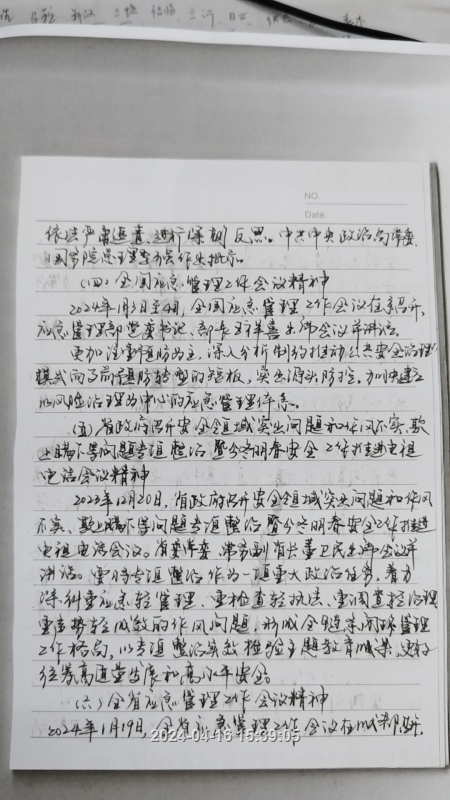 NO.
Date.
依法严肃追责,进行深刻反思。中共中央政治局常委
国务院总理李强作出批示。
(四)全国应急管理工作会议精神
2024年1月5日至6日,全国应急管理工作会议在京召开,
应急管理部党委书记、部长王祥喜出席会议并讲话。
更加注重预防为主,深入分析制约推动公共安全治理
模式向事前预防转型的短板,突出源头防控,加快建立
以风险治理为中心的应急管理体系。
(五)省政府召开安全领域突出问题和作风不实、欺
上瞒下等问题专项整治暨今冬明春安全工作推进电视
电话会议精神
2023年12月20日,省政府召开安全领域突出问题和作风
不实、欺上瞒下等问题专项整治暨今冬明春安全工作推进
电视电话会议。省委常委、常务副省长董卫民出席会议并
讲话。要将专项整治作为一项重大政治任务,着力
纠重应急轻管理、重检查轻执法、重调查轻治理
重声势轻成效的作风问题,形成全链条闭环管理
工作格局,以专项整治实效检验主题教育成果,更好
统筹高质量发展和高水平安全。
(六)全省应急管理工作会议精神
2024年1月19日,全省应急管理工作会议在成都召开
2024-04-16 15:39:05